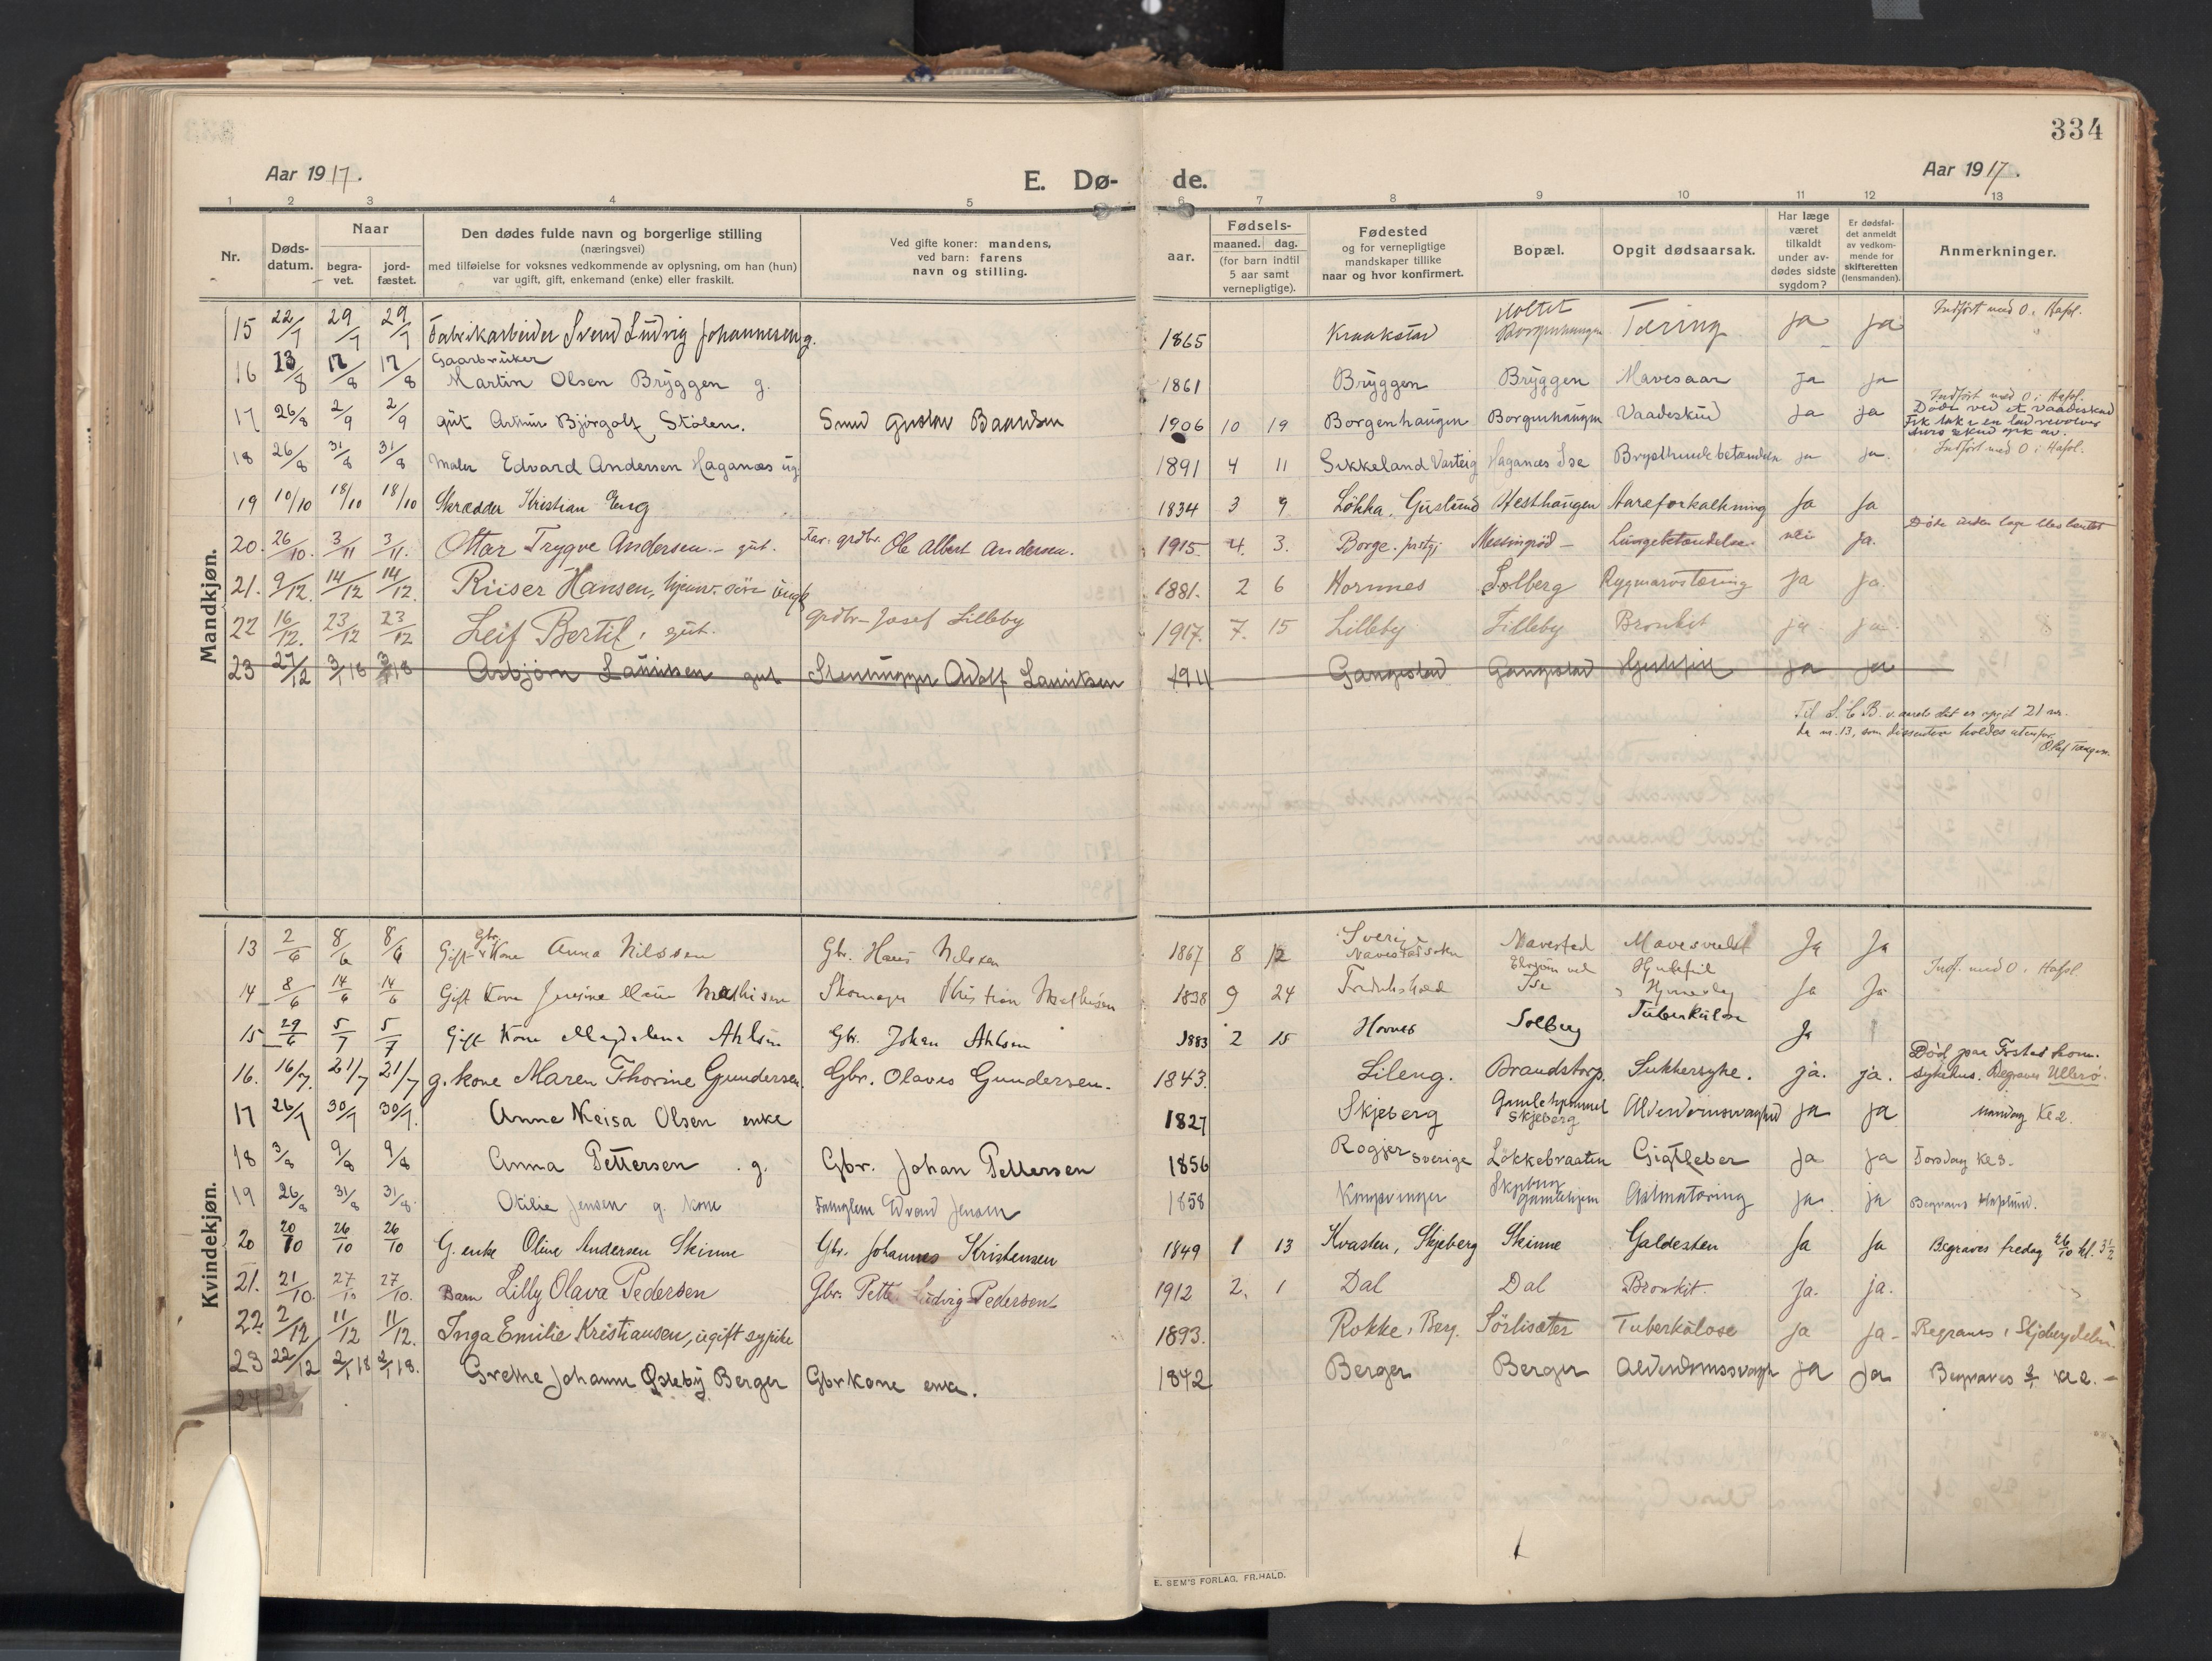 334
Aar 1917.
E. Dø-
de.
Aar 1917.
1 2 3 4 5 6 7 8 9 10 11 12 13
Nr.
Døds-
datum.
Naar
begra-
vet.
jord-
fæstet.
Den dødes fulde navn og borgerlige stilling
(næringsvei)
med tilføielse for voksnes vedkommende av oplysning, om han (hun)
var ugift, gift, enkemand (enke) eller fraskilt.
Ved gifte koner: mandens,
ved barn: farens
navn og stilling.
Fødsels-
aar.
maaned. dag.
(for barn indtil
5 aar samt
vernepligtige).
Fødested
og for vernepligtige
mandskaper tillike
naar og hvor konfirmert.
Bopæl.
Opgit dødsaarsak.
Har læge
været
tilkaldt
under av-
dødes sidste
sygdom?
Er dødsfal-
det anmeldt
av vedkom-
mende for
skifteretten
(lensmanden).
Anmerkninger.
Mandkjøn.
15 22/7 29/7 29/7 Fabrikarbeider Svend Ludvig Johannesen g. 1865 Kraakstad Holtet Borgenhaugen Tæring ja ja Indført med O i Hafsl.
16 13/8 17/8 17/8 Gaarbruker Martin Olsen Bryggen g. 1861 Bryggen Bryggen Mavesaar ja ja
17 26/8 2/9 2/9 gut Artur Bjørgolf Stølen. Smed Gustav Baardsen 1906 10 19 Borgenhaugen Borgenhaugen Vaadeskud ja ja Indført med O i Hafsl.
Døde ved et vaadeskud
Fik tak i en lad revolver
hvis skud gik av.
18 26/8 31/8 31/8 Maler Edvard Andersen Haganæs ug. 1891 4 11 Sikkeland Varteig Haganæs Ise Brysthindebetændelse ja ja. Indført med O i Hafsl.
19 10/10 18/10 18/10 Skrædder Kristian Eng 1834 3 9 Løkka, Guslund Hesthaugen Aareforkalkning Ja Ja
20. 26/10. 3/11 3/11. Ottar Trygve Andersen. - gut. Far. grdbr. Ole Albert Andersen. 1915. 4. 3. Borge. prstgj. Messingrød - Lungebetændelse. nei ja. Døde uden læge blev hentet
21. 9/12. 14/12 14/12. Riiser Hansen, hjemv. søn ungk. 1881. 2 6 Hornnes Solberg Rygmarvstæring ja ja.
22 16/12. 23/12 23/12 Leif Bertil, gut. grdbr- Josef Lilleby 1917. 7. 15 Lilleby Lilleby Bronkit ja. ja.
23 27/12 3/1 18 3/1 18 Asbjørn Lauritsen gut Stenhugger Adolf Lauritsen 1911 Gangestad Gangestad Hjertefeil ja ja
Til S. C. B. v. aarets slut er opgit 21 nr.
da nr. 13, som dissenter holdes utenfor.
Kvindekjøn.
13 2/6 8/6 8/6 Gift Gbr. Kone Anna Nilssen Gbr. Hans Nilssen 1867 8 12 Sverige Navestadsokn Navestad Mavesvulst Ja Ja
14 8/6 14/6 14/6 Gift Kone Mathisen Skomager Kristian Mathisen 1838 9 24 Fredrikshald Ise Hjertefeil Ja Ja Indf. med O. i Hafsl.
15 29/6 5/7 5/7 Gift Kone Magdalena Ahlsen Gbr. Johan Ahlsen 1883 2 15 Hornes Solberg Tuberkulose Ja
16. 16/7. 21/7 21/7 g. kone Maren Thorine Gundersen. Gbr. Olaves Gundersen. 1843. Lileng. Brandstorp. Sukkersyke. ja. ja. Død paa Tostes kom.
sykehus. Begraves Ullerø.
17 26/7 30/7 30/7. Anne Neisa Olsen enke 1827 Skjeberg Gamlehjemmet Skjeberg Alderdomssvaghed ja ja Mandag Kl 2.
18 3/8 9/8 9/8 Anna Pettersen . g. Gbr. Johan Pettersen 1856 Rogjer Sverige Løkkebraaten Gigtfeber ja ja Torsdag kl 3.
19 26/8 31/8 31/8. Otilie Jensen g. kone Edvard Jensen 1858 Kongsvinger Skjeberg Gamlehjem ja. ja
20 20/10 26/10 26/10 G. enke Oline Andersen Skinne Gbr. Johannes Kristensen 1849 1 13 Kvasten, Skjeberg Skinne Galdesten Ja Ja Begraves fredag 26/10 kl. 3 1/2
21. 21/10. 27/10 27/10. Barn Lilly Olava Pedersen Gbr. Petter Ludvig Pedersen 1912 2. 1 Dal Dal Bronkit. Ja. ja.
22. 2/12 11/12 11/12. Inga Emilie Kristiansen, ugift sypike 1893. Rokke, Berg. Sørlisæter Tuberkulose ja ja - Begraves i Skjeberg
23 22/12 2/1 18 2/1 18. Grethe Johanne Østeby Berger Gbrkone enke. 1842 Berger Berger Alderdomssvagh ja ja Begraves 2/1 kl 2. -
24
E. SEM'S FORLAG, FR.HALD.